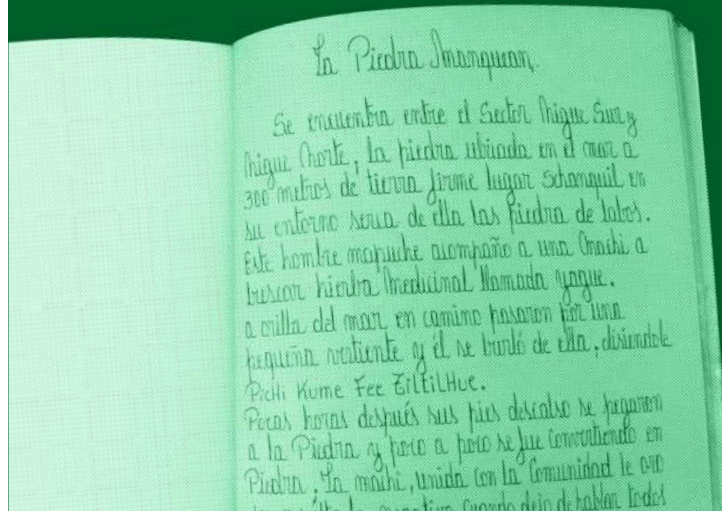 La Piedra Manguean.
Se encuentra entre el Sector Migue Sur y
Migue Norte, la piedra ubicada en el mar a
300 metros de tierra firme lugar Schanquil en
su entorno seria de ella las piedra de lobos.
Este hombre mapuche acompaño a una Machi a
buscar hierba Medicinal llamada yague.
a orilla del mar en camino pasaron por una
pequeña vertiente y él se burló de ella, disiendole
Pichi Kume Fee ZilTilHue.
Pocas horas después sus pies descalso se pegaron
a la Piedra y poco a poco se fue Convirtiendo en
Piedra, La machi, unida con la Comunidad le oro
negativa Cuando dejo de hablar todos